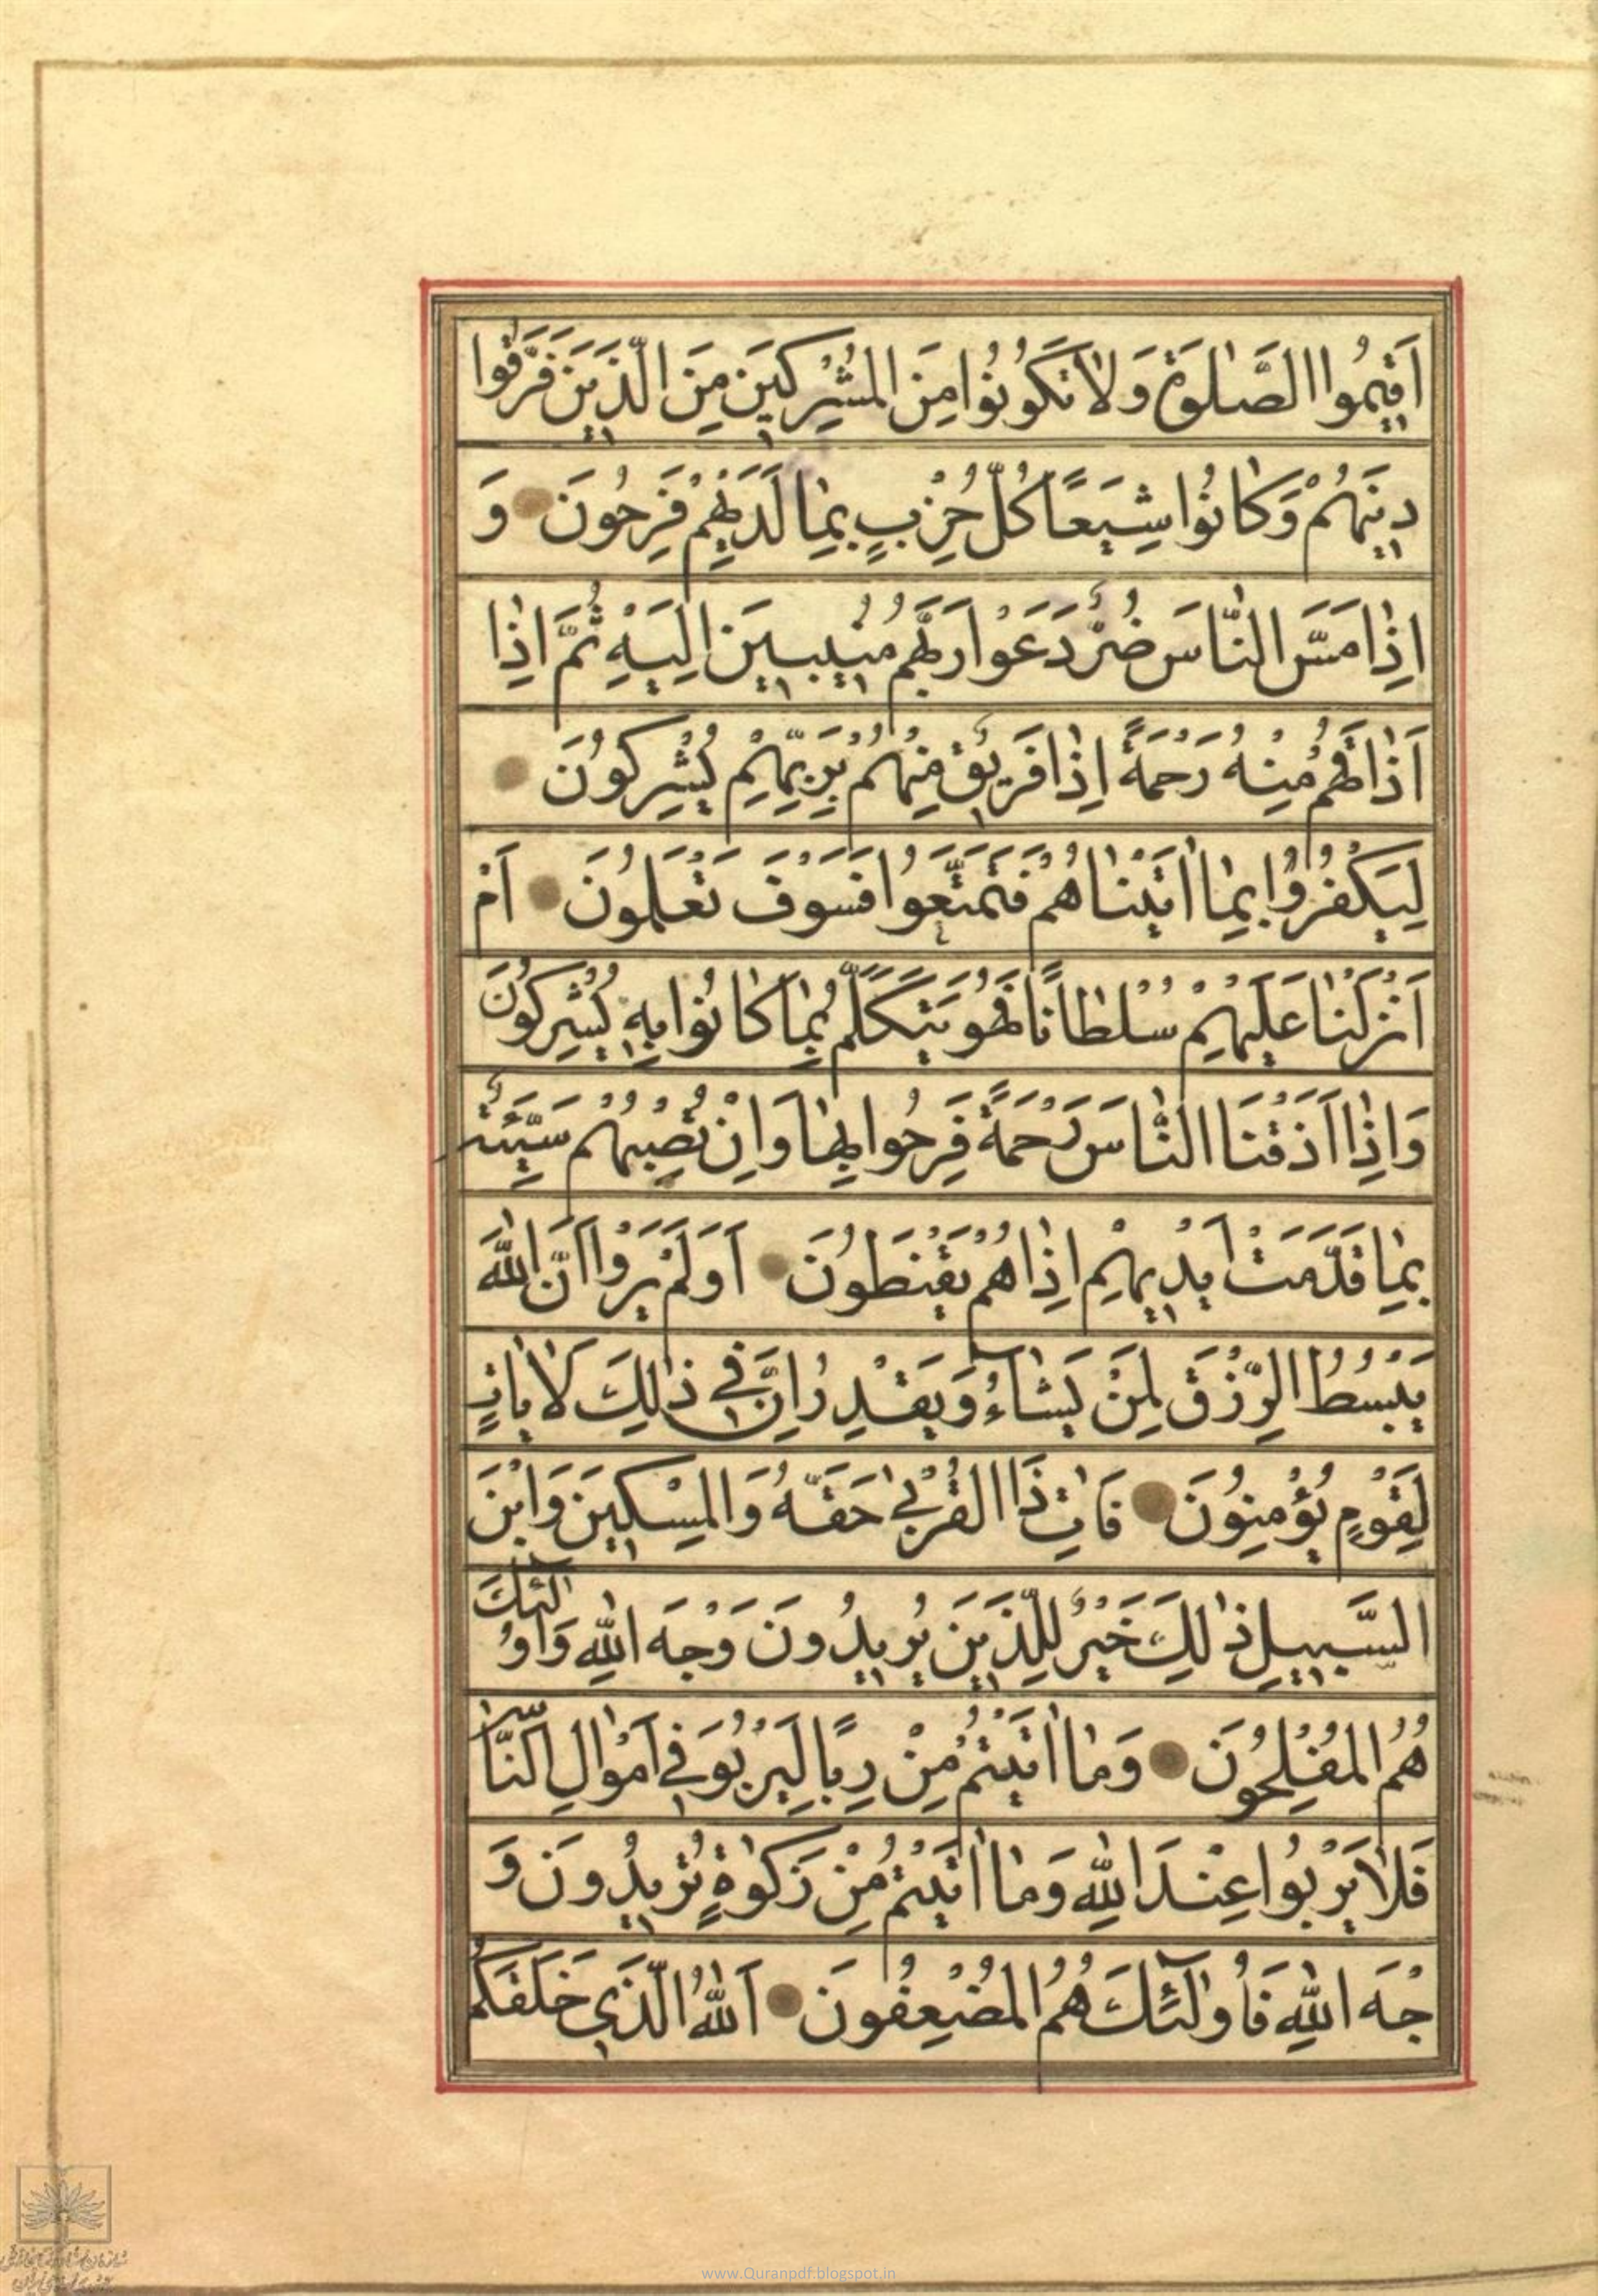 اَقيمُوا الصَّلٰوةَ وَلاٰ تَكُونُوا مِنَ المُشْرِكينَ مِنَ الَّذينَ فَرَّقُوا
دينَهُمْ وَكٰانُوا شِيَعًا كُلُّ حِزْبٍ بِمٰا لَدَيْهِمْ فَرِحُونَ وَ
اِذٰا مَسَّ النّٰاسَ ضُرٌّ دَعَوْا رَبَّهُمْ مُنيبينَ اِلَيْهِ ثُمَّ اِذٰا
اَذٰاقَهُمْ مِنْهُ رَحْمَةً اِذٰا فَريقٌ مِنْهُمْ بِرَبِّهِمْ يُشْرِكُونَ
لِيَكْفُرُوا بِمٰا اٰتَيْنٰاهُمْ فَتَمَتَّعُوا فَسَوْفَ تَعْلَمُونَ اَمْ
اَنْزَلْنٰا عَلَيْهِمْ سُلْطٰانًا فَهُوَ يَتَكَلَّمُ بِمٰا كٰانُوا بِهِ يُشْرِكُونَ
وَاِذٰا اَذَقْنَا النّٰاسَ رَحْمَةً فَرِحُوا بِهٰا وَاِنْ تُصِبْهُمْ سَيِّئَةٌ
بِمٰا قَدَّمَتْ اَيْديهِمْ اِذٰا هُمْ يَقْنَطُونَ اَوَلَمْ يَرَوْا اَنَّ اللّٰهَ
يَبْسُطُ الرِّزْقَ لِمَنْ يَشٰاءُ وَيَقْدِرُ اِنَّ في ذٰلِكَ لَاٰيٰاتٍ
لِقَوْمٍ يُؤْمِنُونَ فَاٰتِ ذَا القُرْبىٰ حَقَّهُ وَالمِسْكينَ وَابْنَ
السَّبيلِ ذٰلِكَ خَيْرٌ لِلَّذينَ يُريدُونَ وَجْهَ اللّٰهِ وَاُولٰئِكَ
هُمُ المُفْلِحُونَ وَمٰا اٰتَيْتُمْ مِنْ رِبًا لِيَرْبُوَ في اَمْوٰالِ النّٰاسِ
فَلاٰ يَرْبُوا عِنْدَ اللّٰهِ وَمٰا اٰتَيْتُمْ مِنْ زَكٰوةٍ تُريدُونَ وَ
جْهَ اللّٰهِ فَاُولٰئِكَ هُمُ المُضْعِفُونَ اَللّٰهُ الَّذي خَلَقَكُمْ
www.Quranpdf.blogspot.in